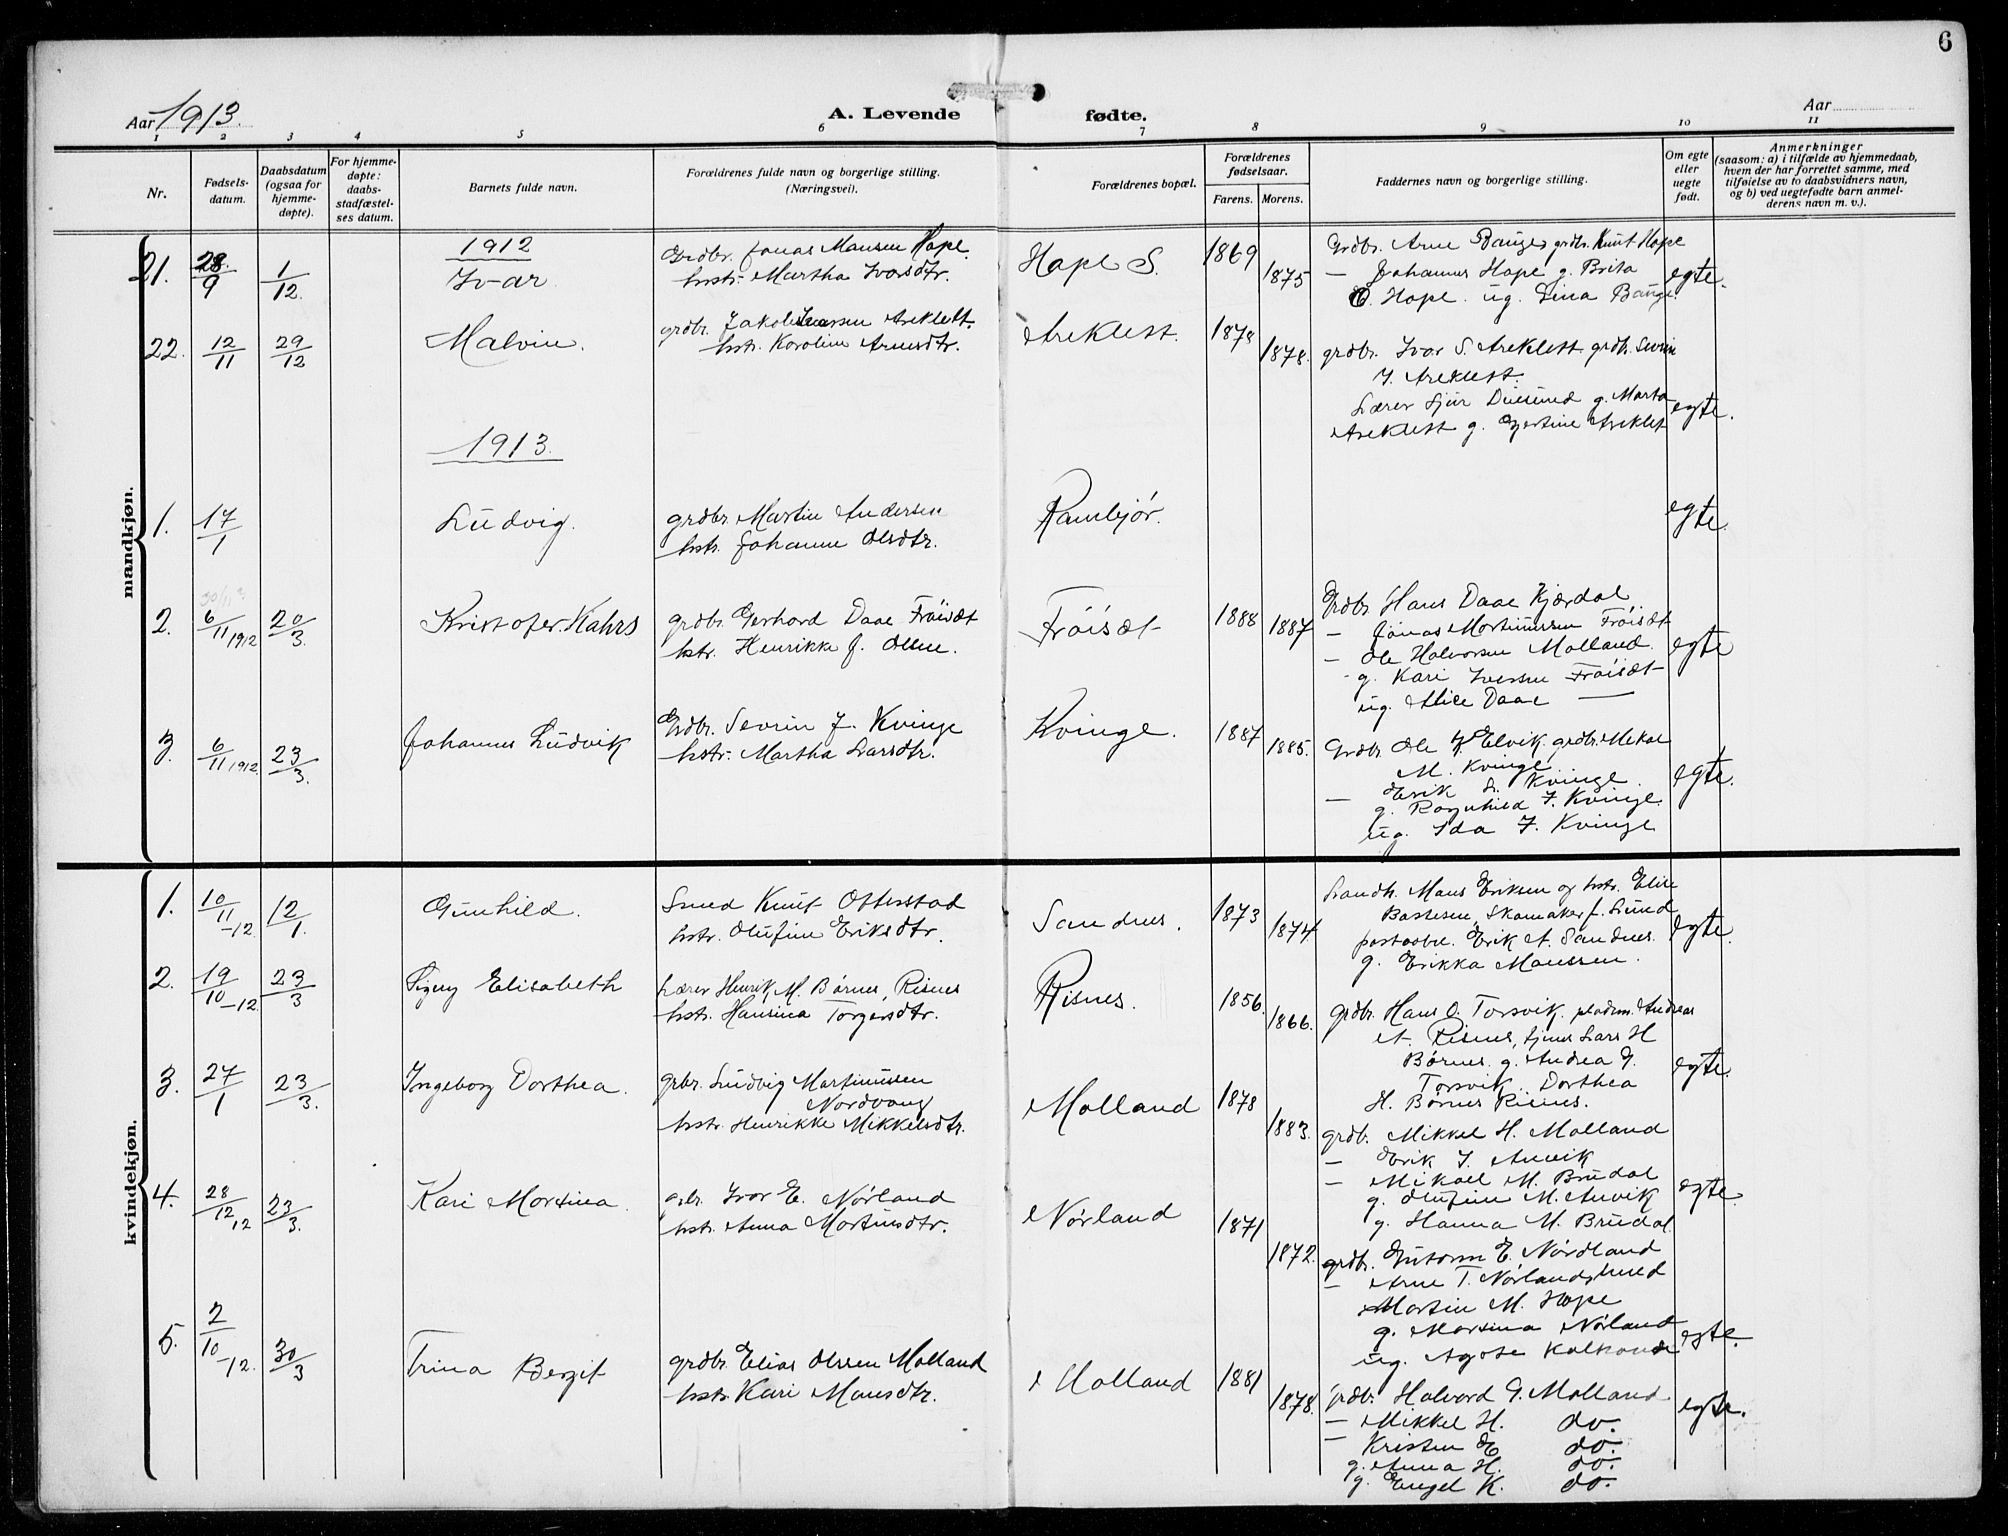 6
Aar 1913.
A. Levende fødte.
Aar
1 2 3 4 5 6 7 8 9 10 11
Nr.
Fødsels-
datum.
Daabsdatum
(ogsaa for
hjemme-
døpte).
For hjemme-
døpte:
daabs-
stadfæstel-
ses datum.
Barnets fulde navn.
Forældrenes fulde navn og borgerlige stilling.
(Næringsvei).
Forældrenes bopæl.
Forældrenes
fødselsaar.
Farens. Morens.
Faddernes navn og borgerlige stilling.
Om egte
eller
uegte
født.
Anmerkninger
(saasom: a) i tilfælde av hjemmedaab,
hvem der har forrettet samme, med
tilføielse av to daabsvidners navn,
og b) ved uegtefødte barn anmel-
derens navn m. v.).
mandkjøn.
1912
21. 28/9 1/12. Ivar
Grdbr. Jonas Mansen Hope.
hstr. Martha Ivarsdtr.
Hope S. 1869 1875
Grdbr. Arne Bauge, grdbr. Knut Hope
— Johannes Hope g. Brita
O. Hope. ug. Dina Bauge.
egte.
22. 12/11 29/12 Malvin.
grdbr. Jakob Iversen Areklett.
hstr. Karoline Arnesdtr.
Areklett. 1878 1878.
grdbr. Ivar S. Areklett grdb. Sevrin
J. Areklett.
Lærer Sjur g. Marta
Areklett g. Areklet
egte.
1913.
1. 17/1 Ludvig.
grdbr. Martin Andersen
hstr. Johanne Olsdtr.
Rambjør.
egte.
2. 6/11 1912 20/3. Kristofer Kahrs
grdbr. Gerhard Daae Frøisæt
hstr. Henrikke J. Olsen.
Frøisæt 1888 1887
Grdbr. Hans Daae Kjærdal
— Jonas Mortinussen Frøisæt
— Ole Halvorsen Molland.
g. Kari Iversen Frøisæt
ug. Alice Daae —
egte
3. 6/11 1912. 23/3. Johannes Ludvik
Grdbr. Sevrin J. Kvinge
hstr. Martha Larsdtr.
Kvinge. 1887 1885.
Grdbr. Ole Elvik. grdbr. Mikal
M. Kvinge
— Erik L. Kvinge
g. Ragnhild J. Kvinge.
ug. Ida J. Kvinge
egte.
kvindekjøn.
1. 10/11 -12. 12/1. Gunhild.
Smed Knut Otterstad
hstr. Olufine Eriksdtr.
Sandnes. 1873 1874.
Landh. Mans Eriksen og hstr. Elise
Bastesen, Skomaker J. Lund
postaabn. Erik A. Sandnes.
g. Erikka Monssen.
egte.
2. 19/10 -12. 23/3 Signy Elisabeth
Lærer Henrik M. Børnes, Risnes
hstr. Hansina Torgersdtr.
Risnes. 1856. 1866.
grdbr. Hans O. Torsvik. pladsm. Andreas
A. Risnes, Lars H
Børnes. g. Andrea G.
Torsvik. Dorthea
H. Børnes Risnes.
egte.
3. 27/1 23/3. Ingeborg Dorthea.
grbr. Ludvig Martinussen
Nordvang
hstr. Henrikke Mikkelsdtr.
Molland 1878 1883.
grdb. Mikkel H. Molland
— Erik J. Anvik
— Mikael M. Brudal
g. Olufine M. Anvik
g. Hanna M. Brudal.
egte.
4. 28/12 12 23/3. Kari Mortina.
grbr. Ivar E. Nørland
hstr. Anna Mortinsdtr.
Nørland 1871 1872.
grdbr. Guttorm E. Nørdland
— Arne T. Nørland, smed
Martin M. Hope
g. Martina Nørland
ug. Agote
egte.
5. 2/10 -12. 30/3 Trina Bergit
grdbr. Elias Olssen Molland
hstr. Kari Mansdtr.
Molland 1881 1878.
grdbr. Halvard G. Molland
— Mikkel H. do.
— Kristen E do.
g. Anna H. do.
g. Engel K. do.
egte.